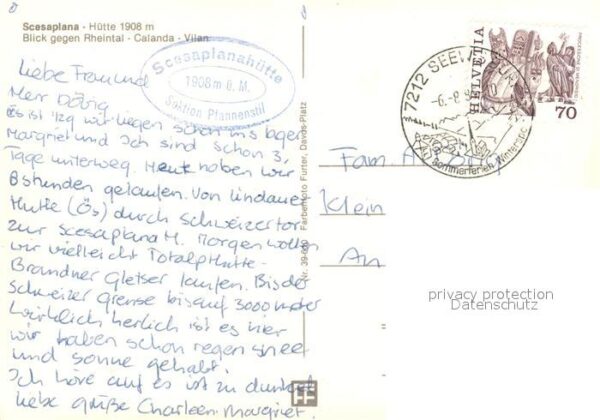 Scesaplana - Hütte 1908 m
Blick gegen Rheintal - Calanda - Vilan
Scesaplanahütte
1908 m ü. M.
Sektion Pfannenstil
Liebe Frau und
Herr
Es ist wir liegen schon ins lager
Margriet und Ich sind schon 3
Tage unterweg. Heute haben wir
8 stunden gelaufen. Von Lindauer
Hütte (Ös) durch schweizertor
zur scesaplana H. Morgen wollen
wir vielleicht Totalphütte -
Brandner Gletser laufen. Bis der
Schweizer grense bis auf 3000 meter
Wirklich herlich ist es hier
wir haben schon regen snee
und sonne gehabt.
Ich höre auf es ist zu dunkel
liebe grüße Charleen - Margriet.
Farbenfoto Furter, Davos-Platz
7212 SEEWIS
Sommerferien Wintersport
HELVETIA
70
Fam.
Klein
An
privacy protection
Datenschutz